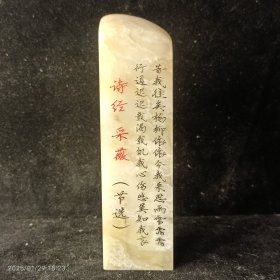 昔我往矣杨柳依依今我来思雨雪霏霏
行道迟迟载渴载饥我心伤悲莫知我哀
诗经 采薇
（节选）
2025/01/29 15:23